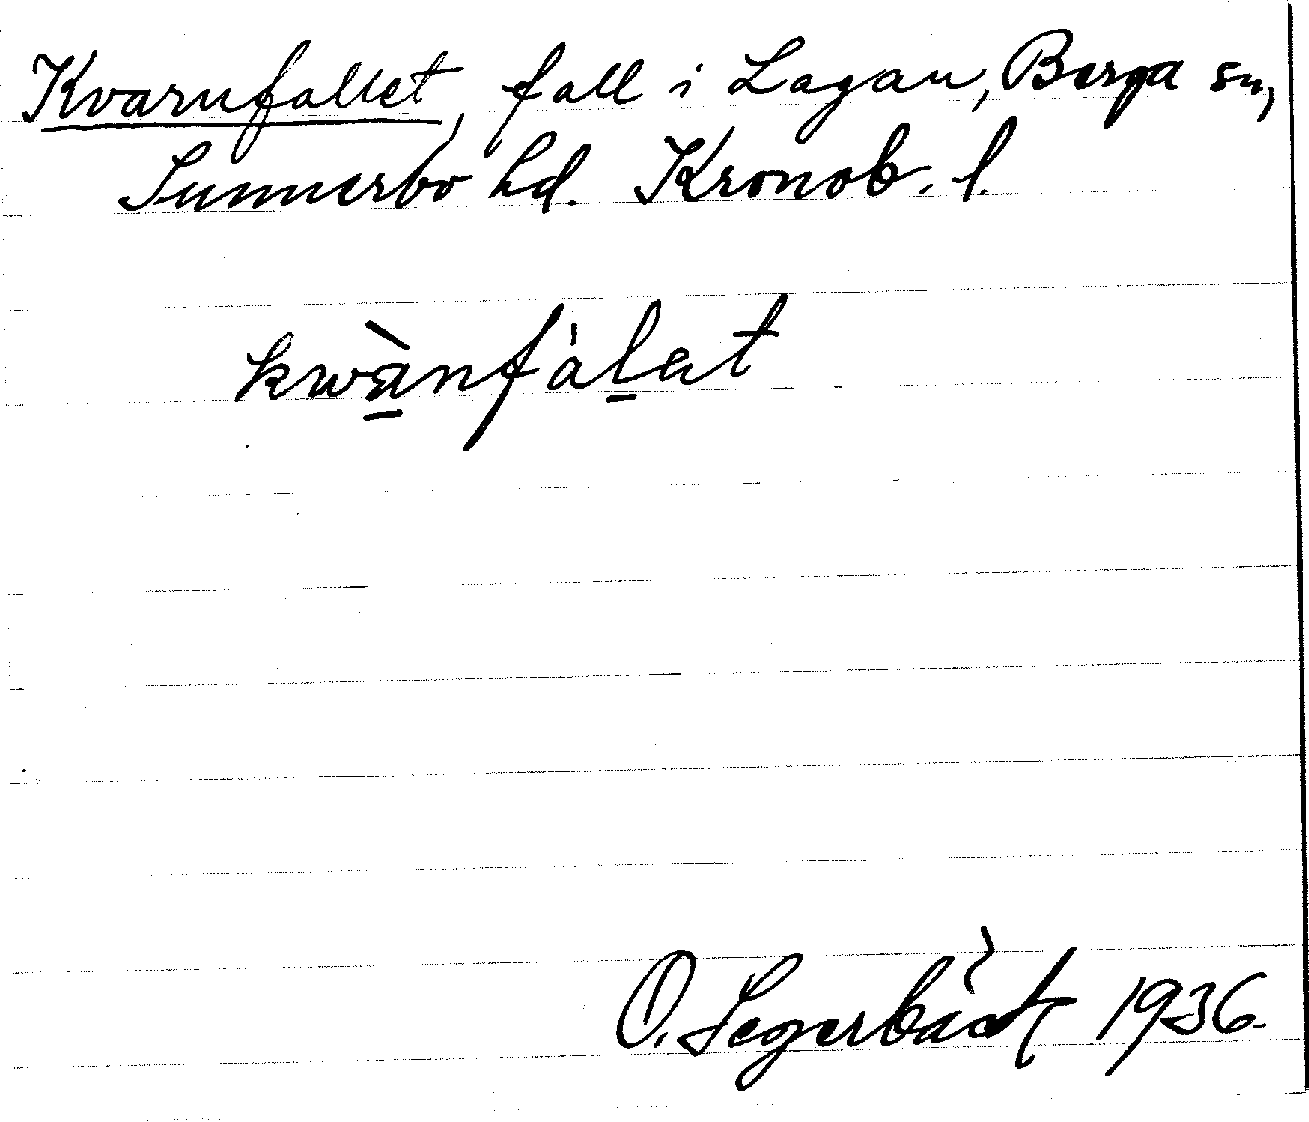 Kvarnfallet, fall i Lagan, Berga sn,
Sunnerbo hd. Kronob. l.
kwànfàlat
O. Segerbäck 1936.